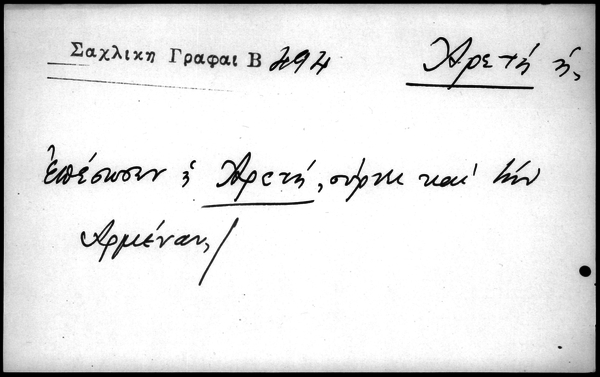 Σαχλικη Γραφαι Β 494 Ἀρετή ἡ,
ἐπέσωσεν ἡ Ἀρετή, σύρνε καὶ τὴν
Ἀρμέναν,/